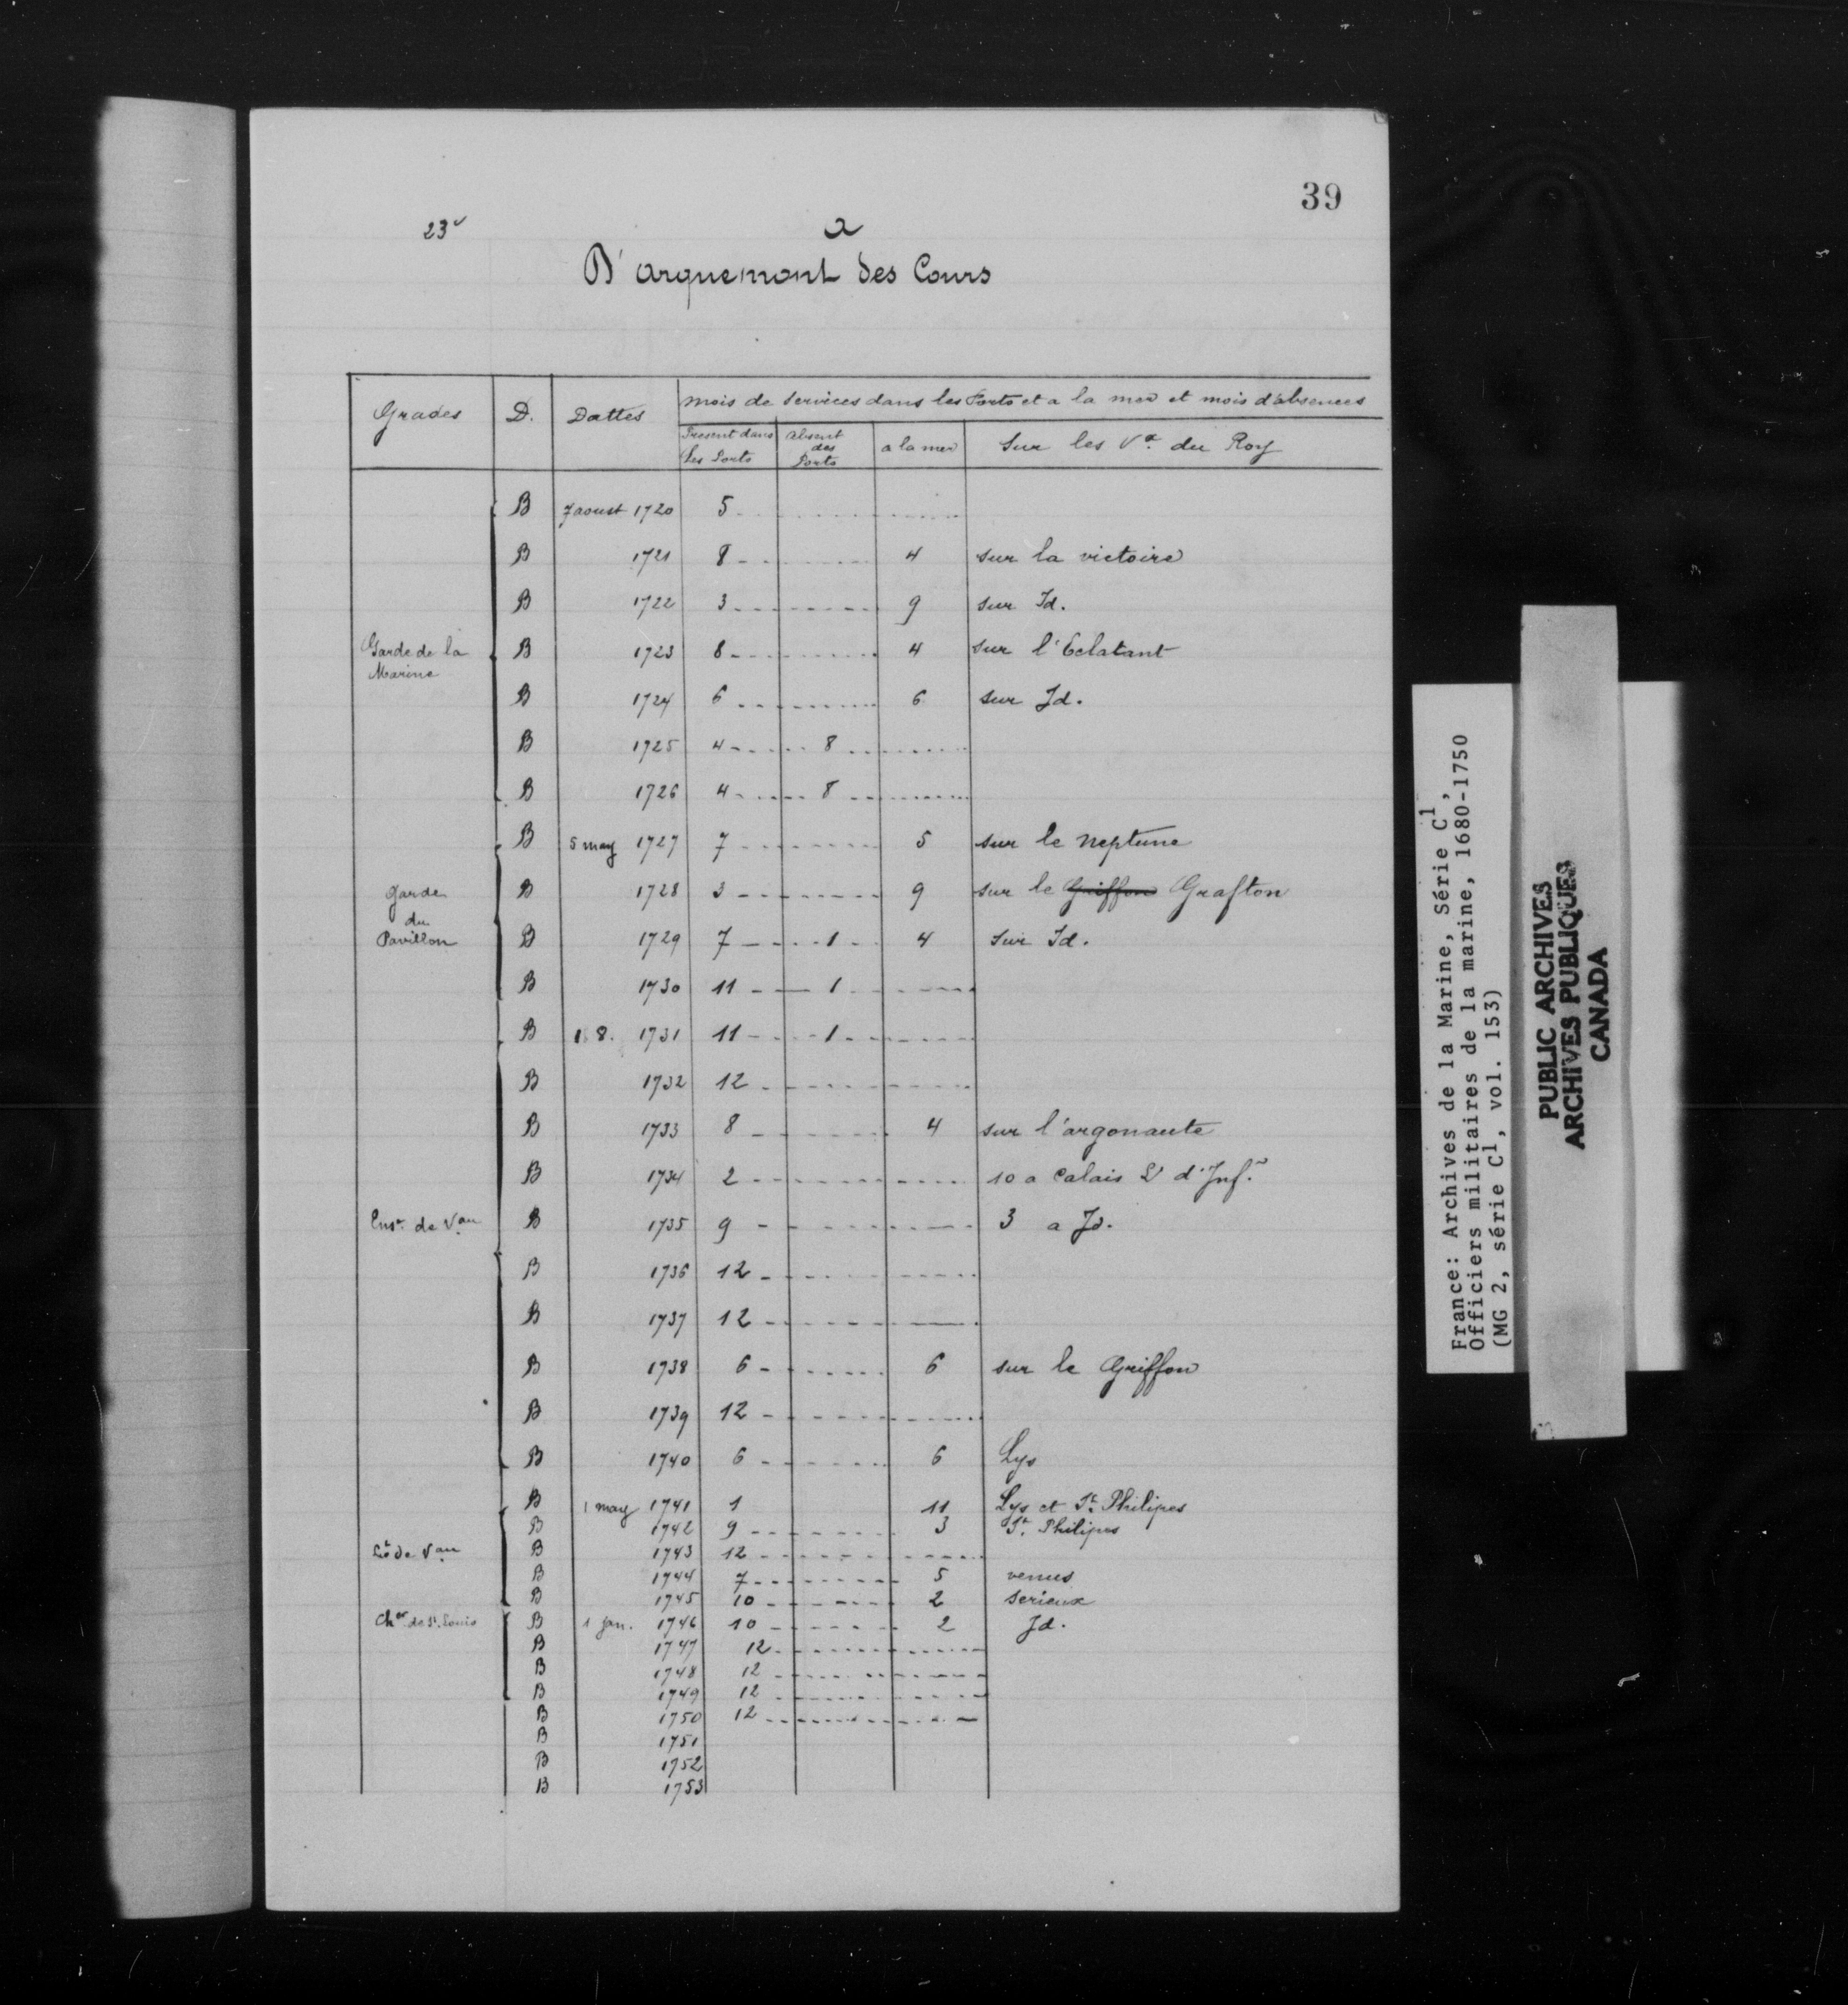 39
23v
a
D'arquemont des Cours
Grades D. Dattes mois de services dans les Ports et a la mer et mois d'absences
Present dans les Ports absent des Ports a la mer Sur les Vx du Roy
B 7 aoust 1720 5
B 1721 8 4 sur la victoire
B 1722 3 9 sur Id.
Garde de la Marine B 1723 8 4 sur l'Eclatant
B 1724 6 6 sur Id.
B 1725 4 8
B 1726 4 8
B 5 may 1727 7 5 sur le neptune
garde du Pavillon B 1728 3 9 sur le Griffon Grafton
B 1729 7 1 4 sur Id.
B 1730 11 1
B 1 8. 1731 11 1
B 1732 12
B 1733 8 4 sur l'argonaute
B 1734 2 10 a Calais Lt d'Inf.
Ense. de Vau B 1735 9 3 a Id.
B 1736 12
B 1737 12
B 1738 6 6 sur le Griffon
B 1739 12
B 1740 6 6 Lys
B 1 may 1741 1 11 Lys et St. Philipes
B 1742 9 3 St. Philipes
Lt de Vau B 1743 12
B 1744 7 5 venus
B 1745 10 2 serieux
Cher de St. Louis B 1 jan. 1746 10 2 Id.
B 1747 12
B 1748 12
B 1749 12
B 1750 12
B 1751
B 1752
B 1753
France: Archives de la Marine, Série C1,
Officiers militaires de la marine, 1680-1750
(MG 2, série C1, vol. 153)
PUBLIC ARCHIVES
ARCHIVES PUBLIQUES
CANADA